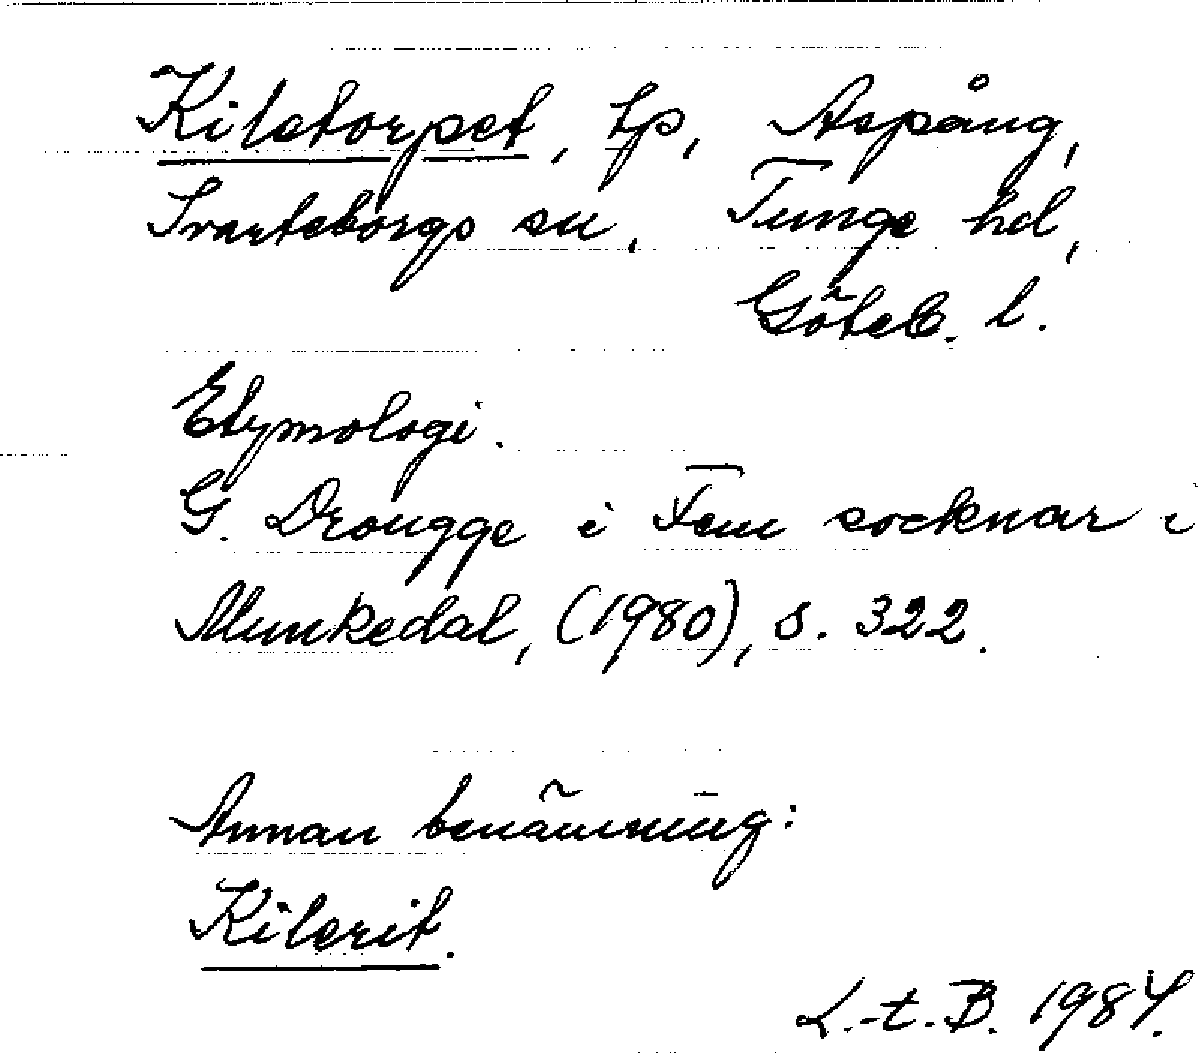 Kiletorpet, tp, Aspång,
Svarteborgs sn, Tunge hd,
Göteb. l.
Etymologi.
G. Drougge i Fem socknar i
Munkedal, (1980), s. 322.
Annan benämning:
Kilerit.
L.-t. B. 1984.